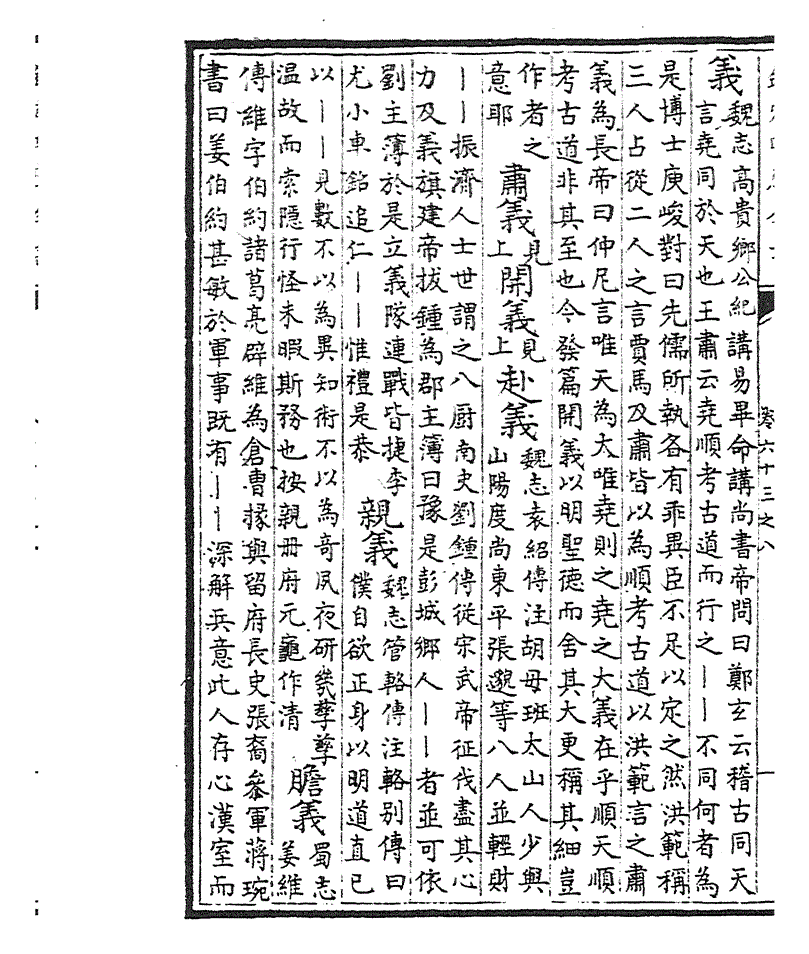 卷六十三之八
義
魏志高貴鄉公紀講易畢命講尚書帝問曰鄭玄云稽古同天
言堯同於天也王肅云堯順考古道而行之丨丨不同何者為
是博士庾峻對曰先儒所執各有乖異臣不足以定之然洪範稱
三人占從二人之言賈馬及肅皆以為順考古道以洪範言之肅
義為長帝曰仲尼言唯天為大唯堯則之堯之大義在乎順天順
考古道非其至也今發篇開義以明聖德而舍其大更稱其細豈
作者之
意耶
肅義
見
上
開義
見
上
赴義
魏志袁紹傳注胡母班太山人少與
山陽度尚東平張邈等八人並輕財
丨丨振濟人士世謂之八厨南史劉鍾傳從宋武帝征伐盡其心
力及義旗建帝拔鍾為郡主簿曰豫是彭城鄉人丨丨者並可依
劉主簿於是立義隊連戰皆捷李
尤小車銘追仁丨丨惟禮是恭
親義
魏志管輅傳注輅別傳曰
僕自欲正身以明道直已
以丨丨見數不以為異知術不以為奇夙夜研幾孳孳
溫故而索隱行怪未暇斯務也按親冊府元龜作清
膽義
蜀志
姜維
傳維字伯約諸葛亮辟維為倉曹掾與留府長史張裔參軍蔣琬
書曰姜伯約甚敏於軍事既有丨丨深解兵意此人存心漢室而